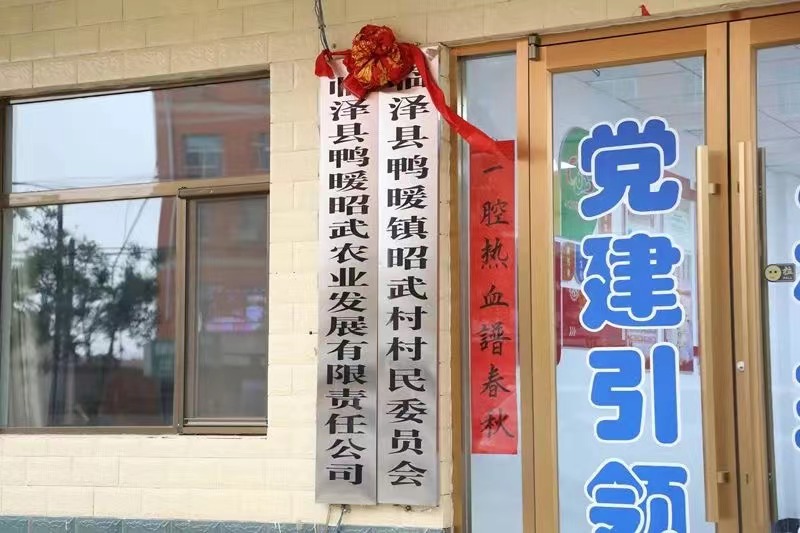 临泽县鸭暖昭武农业发展有限责任公司
临泽县鸭暖镇昭武村村民委员会
一腔热血譜春秋
党建引领
拉